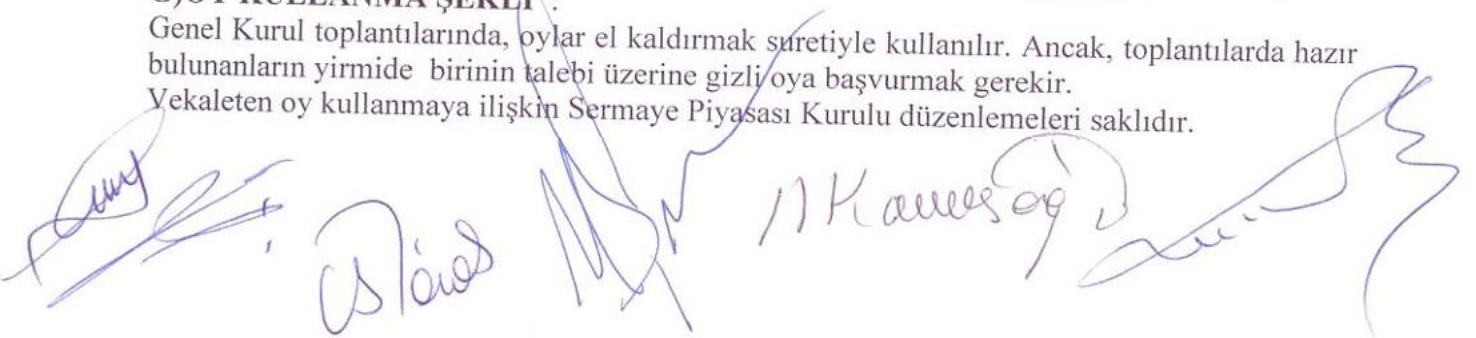 OY KULLANMA ŞEKLİ :
Genel Kurul toplantılarında, oylar el kaldırmak suretiyle kullanılır. Ancak, toplantılarda hazır
bulunanların yirmide birinin talebi üzerine gizli oya başvurmak gerekir.
Vekaleten oy kullanmaya ilişkin Sermaye Piyasası Kurulu düzenlemeleri saklıdır.